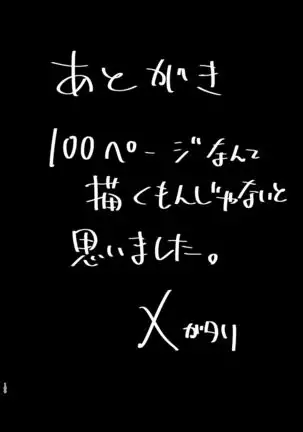 あとがき
100ページなんて
描くもんじゃないと
思いました。
Xがタリ